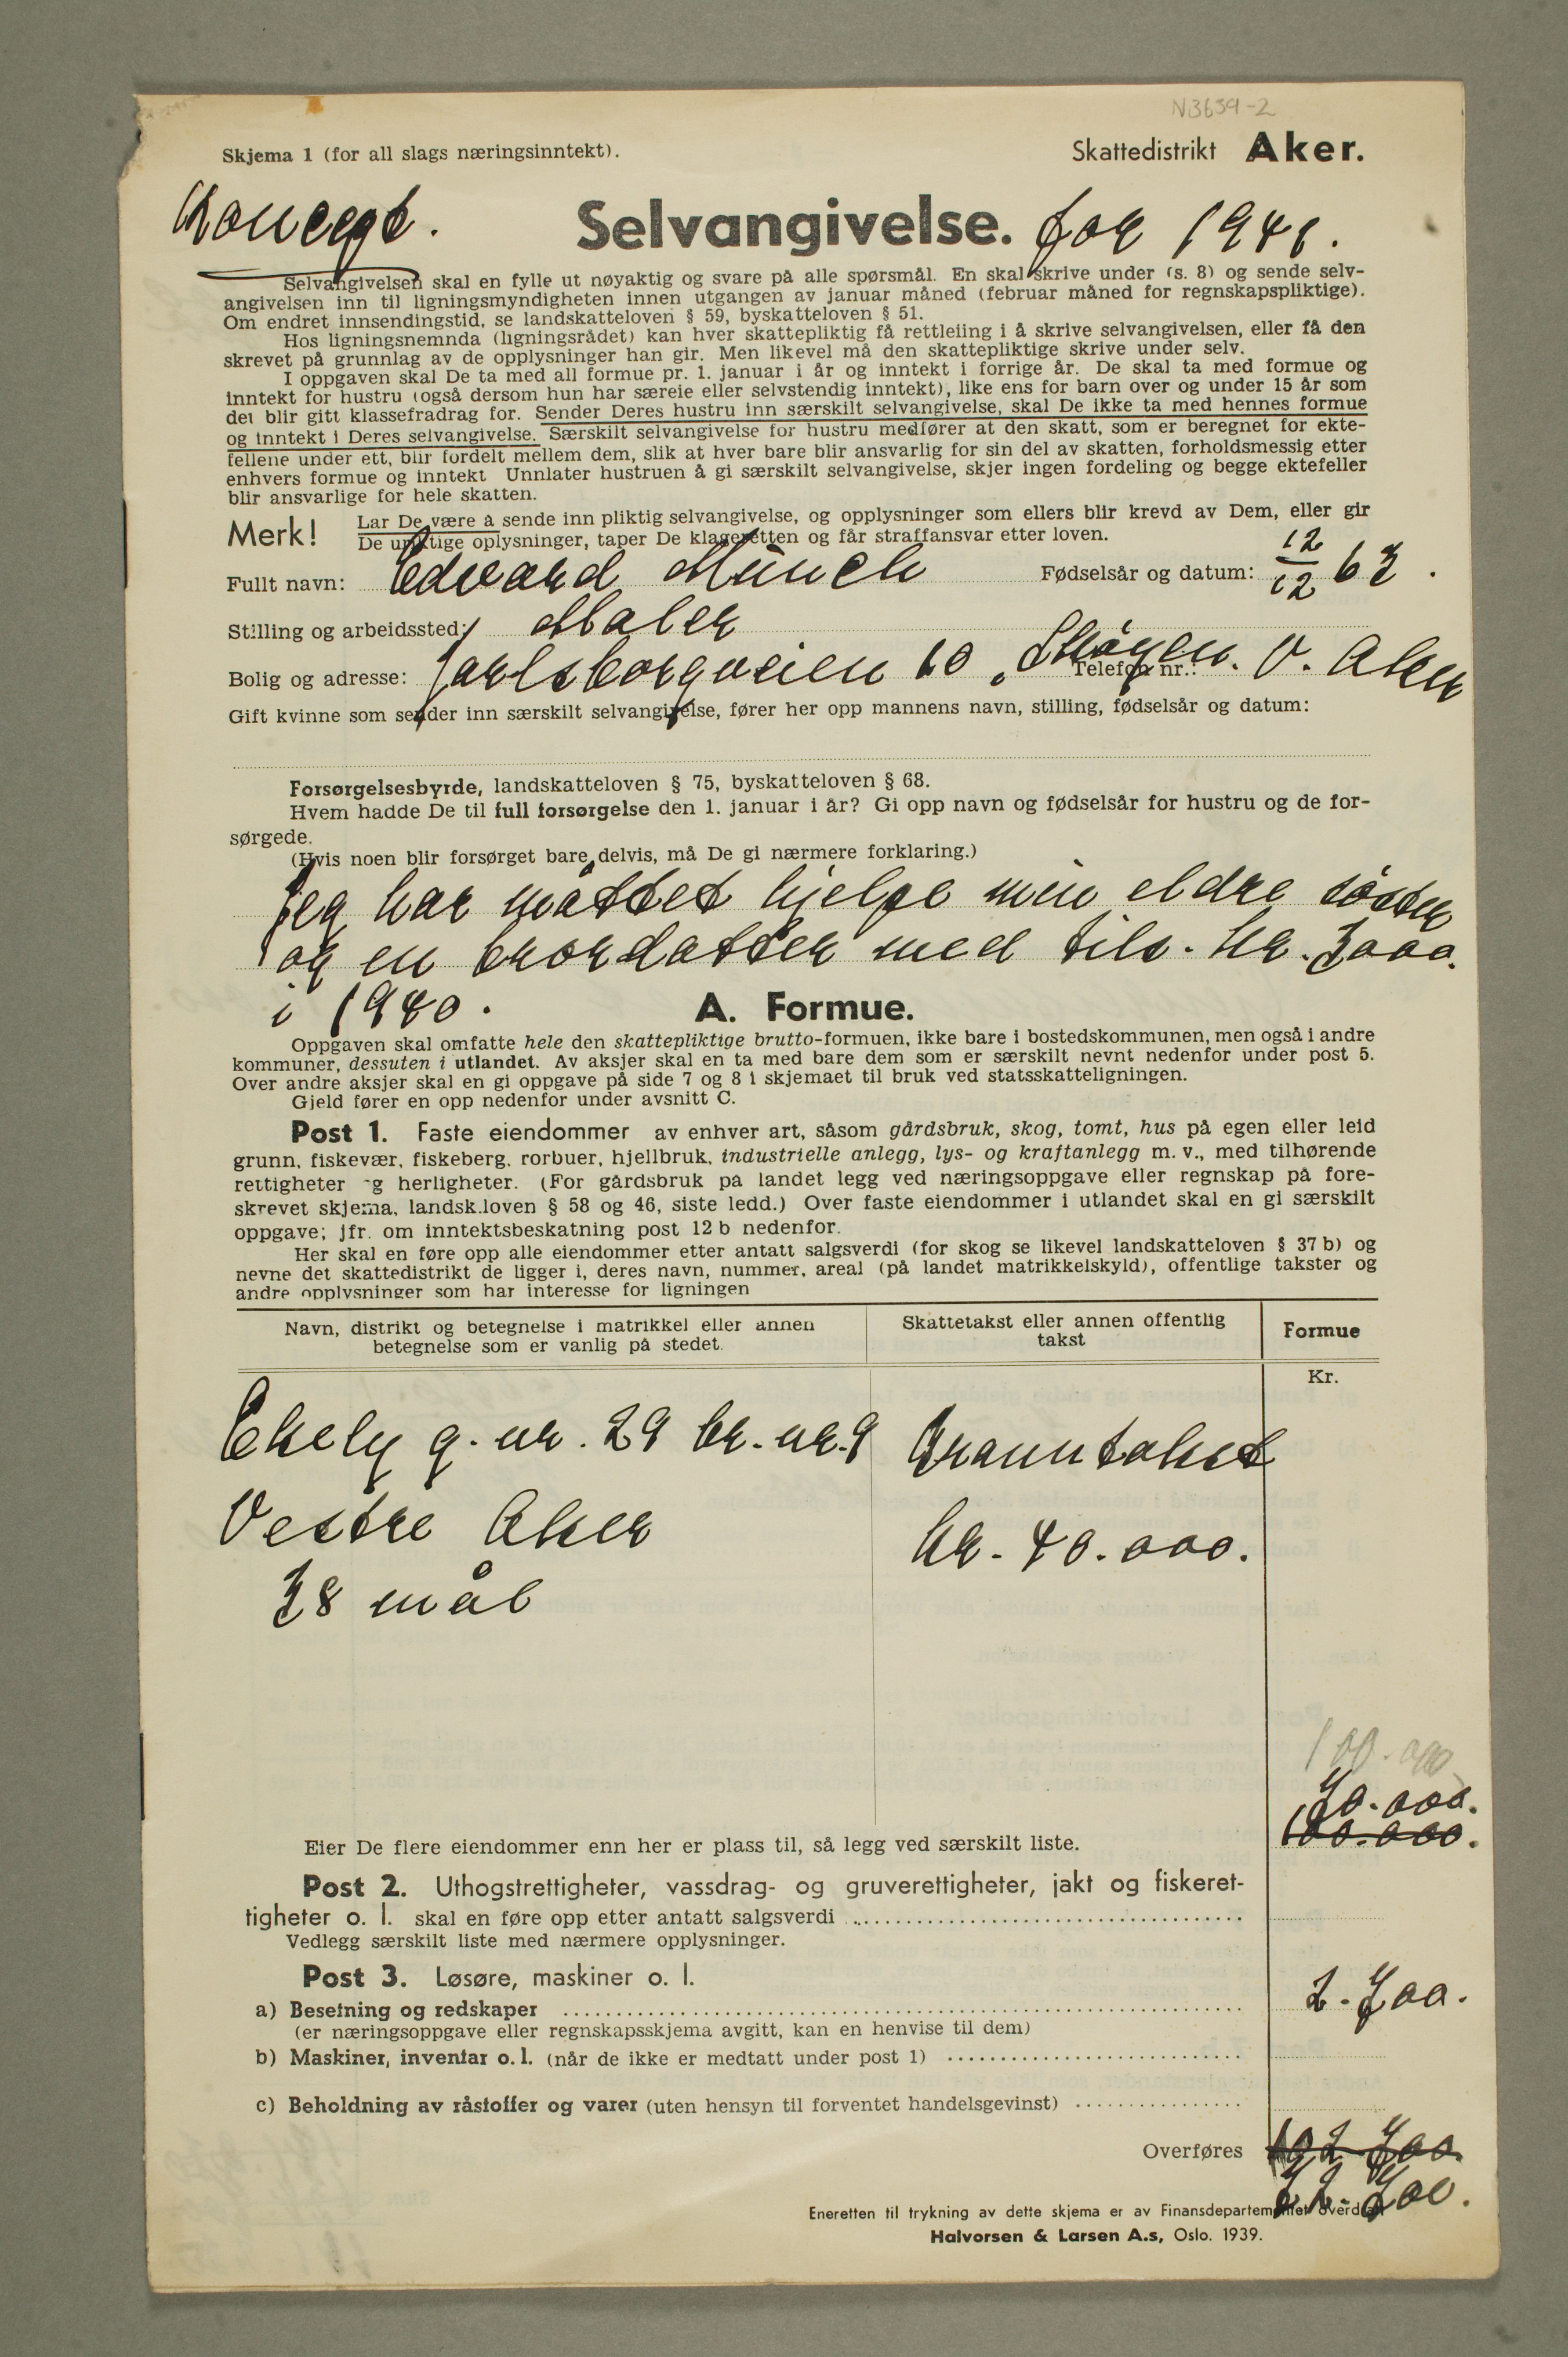 N3659-2
Skjema 1 (for all slags næringsinntekt).
Skattedistrikt Aker.
Koncept.
Selvangivelse. for 1941.
Selvangivelsen skal en fylle ut nøyaktig og svare på alle spørsmål. En skal skrive under (s. 8) og sende selv-
angivelsen inn til ligningsmyndigheten innen utgangen av januar måned (februar måned for regnskapspliktige).
Om endret innsendingstid, se landskatteloven § 59, byskatteloven § 51.
Hos ligningsnemnda (ligningsrådet) kan hver skattepliktig få rettleiing i å skrive selvangivelsen, eller få den
skrevet på grunnlag av de opplysninger han gir. Men likevel må den skattepliktige skrive under selv.
I oppgaven skal De ta med all formue pr. 1. januar i år og inntekt i forrige år. De skal ta med formue og
inntekt for hustru (også dersom hun har særeie eller selvstendig inntekt), like ens for barn over og under 15 år som
det blir gitt klassefradrag for. Sender Deres hustru inn særskilt selvangivelse, skal De ikke ta med hennes formue
og inntekt i Deres selvangivelse. Særskilt selvangivelse for hustru medfører at den skatt, som er beregnet for ekte-
fellene under ett, blir fordelt mellem dem, slik at hver bare blir ansvarlig for sin del av skatten, forholdsmessig etter
enhvers formue og inntekt Unnlater hustruen å gi særskilt selvangivelse, skjer ingen fordeling og begge ektefeller
blir ansvarlige for hele skatten.
Merk! Lar De være å sende inn pliktig selvangivelse, og opplysninger som ellers blir krevd av Dem, eller gir
De uriktige oplysninger, taper De klageretten og får straffansvar etter loven.
Fullt navn: Edvard Munch Fødselsår og datum: 12/12 63.
Stilling og arbeidssted: Maler
Bolig og adresse: Jarlsborgveien 10, Skøyen. V. Aker Telefon nr.:
Gift kvinne som sender inn særskilt selvangivelse, fører her opp mannens navn, stilling, fødselsår og datum:
Forsørgelsesbyrde, landskatteloven § 75, byskatteloven § 68.
Hvem hadde De til full forsørgelse den 1. januar i år? Gi opp navn og fødselsår for hustru og de for-
sørgede.
(Hvis noen blir forsørget bare delvis, må De gi nærmere forklaring.)
Jeg har måttet hjelpe min eldre søster
og en brordatter med tils. kr. 3000.
i 1940.
A. Formue.
Oppgaven skal omfatte hele den skattepliktige brutto-formuen, ikke bare i bostedskommunen, men også i andre
kommuner, dessuten i utlandet. Av aksjer skal en ta med bare dem som er særskilt nevnt nedenfor under post 5.
Over andre aksjer skal en gi oppgave på side 7 og 8 i skjemaet til bruk ved statsskatteligningen.
Gjeld fører en opp nedenfor under avsnitt C.
Post 1. Faste eiendommer av enhver art, såsom gårdsbruk, skog, tomt, hus på egen eller leid
grunn, fiskevær, fiskeberg, rorbuer, hjellbruk, industrielle anlegg, lys- og kraftanlegg m. v., med tilhørende
rettigheter og herligheter. (For gårdsbruk på landet legg ved næringsoppgave eller regnskap på fore-
skrevet skjema, landsk.loven § 58 og 46, siste ledd.) Over faste eiendommer i utlandet skal en gi særskilt
oppgave; jfr. om inntektsbeskatning post 12 b nedenfor.
Her skal en føre opp alle eiendommer etter antatt salgsverdi (for skog se likevel landskatteloven § 37 b) og
nevne det skattedistrikt de ligger i, deres navn, nummer, areal (på landet matrikkelskyld), offentlige takster og
andre opplysninger som har interesse for ligningen
Navn, distrikt og betegnelse i matrikkel eller annen
betegnelse som er vanlig på stedet.
Skattetakst eller annen offentlig
takst
Formue
Kr.
Ekely g. nr. 29 br. nr. 9 Branntakst
Vestre Aker kr. 40.000.
38 mål
100.000
70.000.
100.000.
Eier De flere eiendommer enn her er plass til, så legg ved særskilt liste.
Post 2. Uthogstrettigheter, vassdrag- og gruverettigheter, jakt og fiskeret-
tigheter o. l. skal en føre opp etter antatt salgsverdi
Vedlegg særskilt liste med nærmere opplysninger.
Post 3. Løsøre, maskiner o. l.
a) Besetning og redskaper 2.700.
(er næringsoppgave eller regnskapsskjema avgitt, kan en henvise til dem)
b) Maskiner, inventar o. l. (når de ikke er medtatt under post 1)
c) Beholdning av råstoffer og varer (uten hensyn til forventet handelsgevinst)
Overføres 102.700.
72.700.
Eneretten til trykning av dette skjema er av Finansdepartementet overdratt
Halvorsen & Larsen A.s, Oslo. 1939.